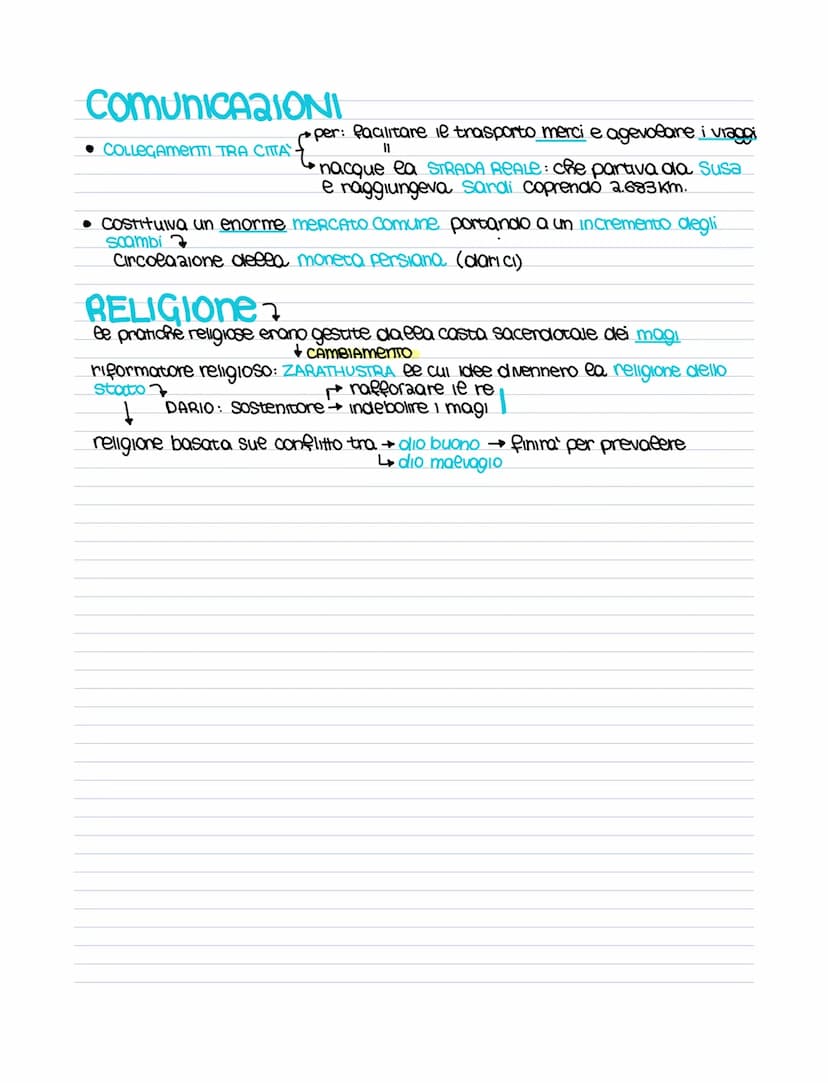 COMUNICAZIONI
per: facilitare il trasporto merci e agevolare i viaggi
• COLLEGAMENTI TRA CITTA'
nacque la STRADA REALE: che partiva da Susa
e raggiungeva Sardi coprendo 2.683 km.
• COSTITUIVA un enorme MERCATO COMUNE portando a un incremento degli
scambi
Circolazione della moneta Persiana (darici)
RELIGIONE
le pratiche religiose erano gestite dalla casta sacerdotale dei magi
CAMBIAMENTO
riformatore religioso: ZARATHUSTRA le cui idee divennero la religione dello
Stato → rafforzare il re
DARIO: sostenitore → indebolire i magi
religione basata sul conflitto tra → dio buono → finira' per prevalere
dio malvagio